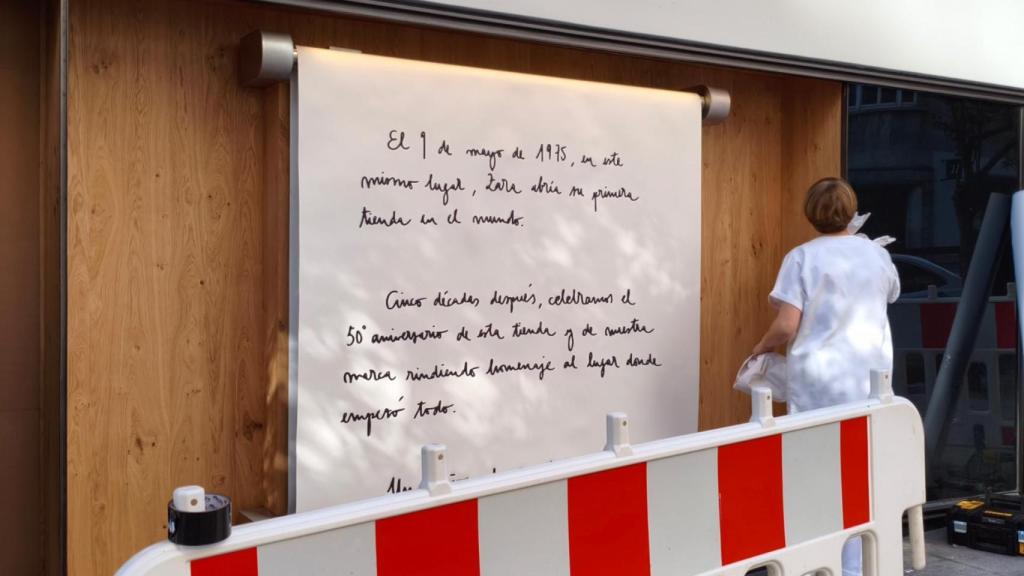 El 9 de mayo de 1975, en este
mismo lugar, Zara abría su primera
tienda en el mundo.
Cinco décadas después, celebramos el
50º aniversario de esta tienda y de nuestra
marca rindiendo homenaje al lugar donde
empezó todo.